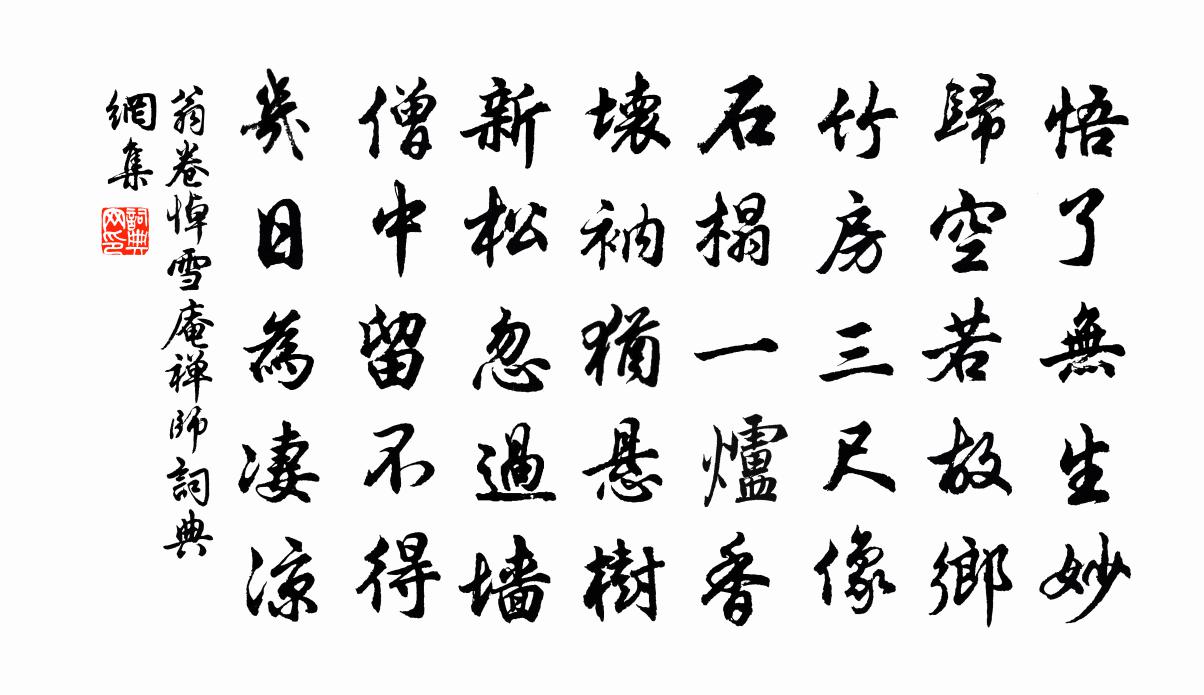 悟了無生妙
歸空若故鄉
竹房三尺像
石榻一爐香
壞衲猶懸樹
新松忽過墙
僧中留不得
幾日為凄凉
翁卷悼雪庵禅師詞典
網集
詞典网印